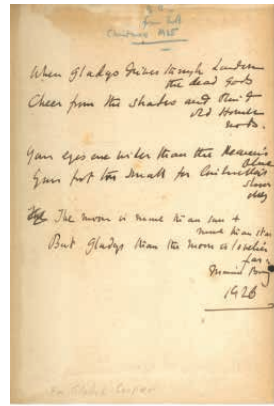 from
Christmas 1925
When Gladys drives through London
the dead Gods
Cheer from the shades and
old Homer
nods.
Your eyes are wider than the Heaven's
blue
Your foot too small for Cinderella's
shoe
The moon is more than sun &
more than star
But Gladys than the moon is lovelier
far.
Maurice
1926